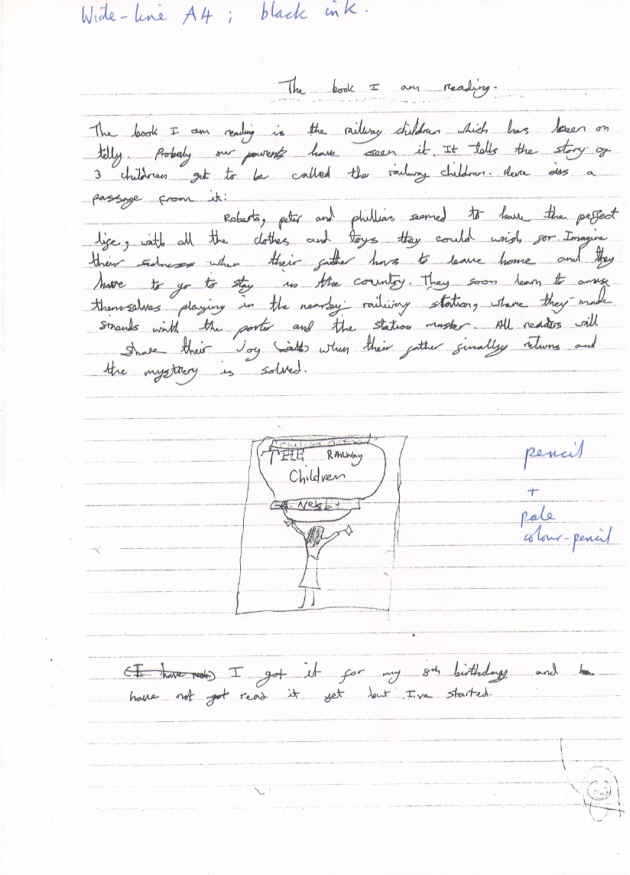 Wide-line A4 ; black ink.
The book I am reading.
The book I am reading is the railway children which has been on
telly. Probely our parents have seen it. It tells the story of
3 children get to be called the railway children. Here is a
passage from it:
Roberta, peter and phillis seemed to have the perfect
life, with all the clothes and toys they could wish for. Imagine
their sadness when their father has to leave home and they
have to go to stay in the country. They soon learn to amuse
themselves playing in the nearby railway station, where they made
friends with the porter and the station master. All readers will
share their joy when their father finally returns and
the mystery is solved.
THE RAILWAY
Children
Nesbit
pencil
+
pale
colour-pencil
(I have not) I got it for my 8th birthday and
have not got read it yet but I've started